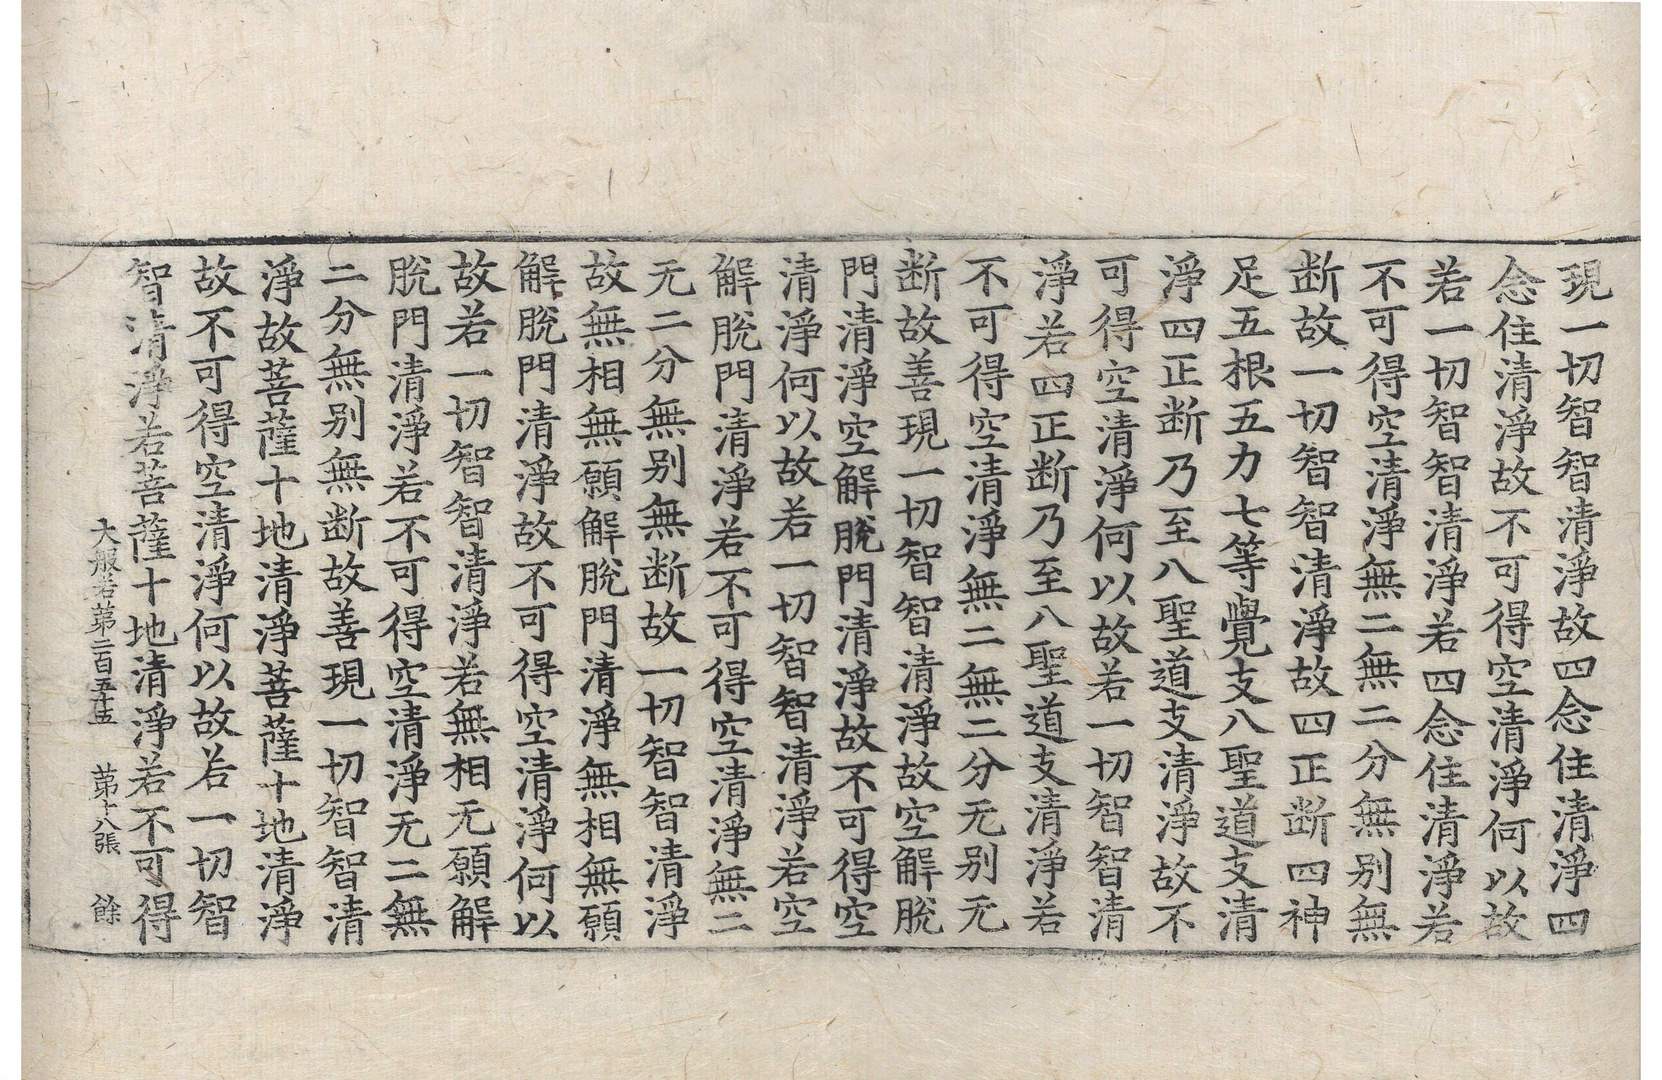 現一切智智清淨故四念住清淨四
念住清淨故不可得空清淨何以故
若一切智智清淨若四念住清淨若
不可得空清淨無二無二分無别無
断故一切智智清淨故四正断四神
足五根五力七等覺支八聖道支清
淨四正断乃至八聖道支清淨故不
可得空清淨何以故若一切智智清
淨若四正断乃至八聖道支清淨若
不可得空清淨無二無二分无别无
断故善現一切智智清淨故空解脫
門清淨空解脫門清淨故不可得空
清淨何以故若一切智智清淨若空
解脫門清淨若不可得空清淨無二
无二分無别無断故一切智智清淨
故無相無願解脫門清淨無相無願
解脫門清淨故不可得空清淨何以
故若一切智智清淨若無相无願解
脫門清淨若不可得空清淨无二無
二分無别無断故善現一切智智清
淨故菩薩十地清淨菩薩十地清淨
故不可得空清淨何以故若一切智
智清淨若菩薩十地清淨若不可得
大般若第二百五十五 第十八張 餘